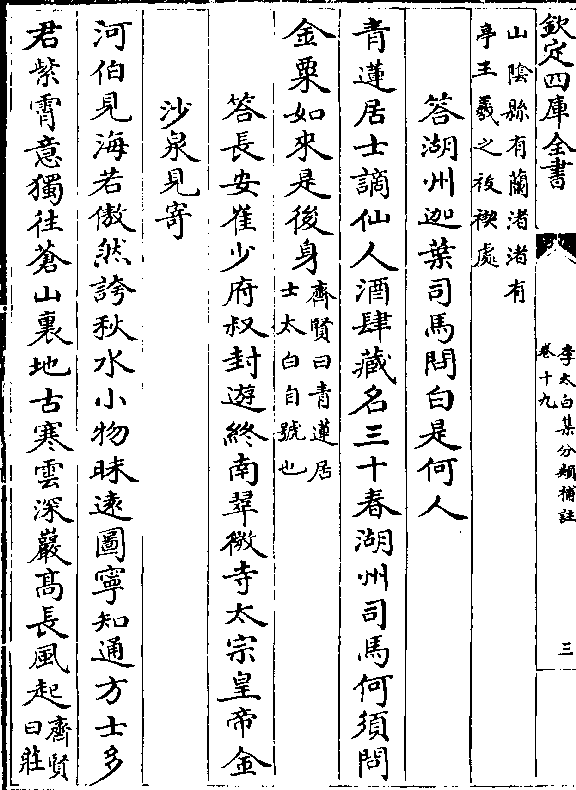 欽定四庫全書
李太白集分類補註
卷十九
三
山隂縣有蘭渚渚有
亭王羲之祓禊處
答湖州迦葉司馬問白是何人
青蓮居士謫仙人酒肆藏名三十春湖州司馬何須問
金粟如來是後身齊賢曰青蓮居
士太白自號也
答長安崔少府叔封遊終南翠微寺太宗皇帝金
沙泉見寄
河伯見海若傲然誇秋水小物昧逺圖寧知通方士多
君紫霄意獨往蒼山裏地古寒雲深巖髙長風起齊賢
曰莊